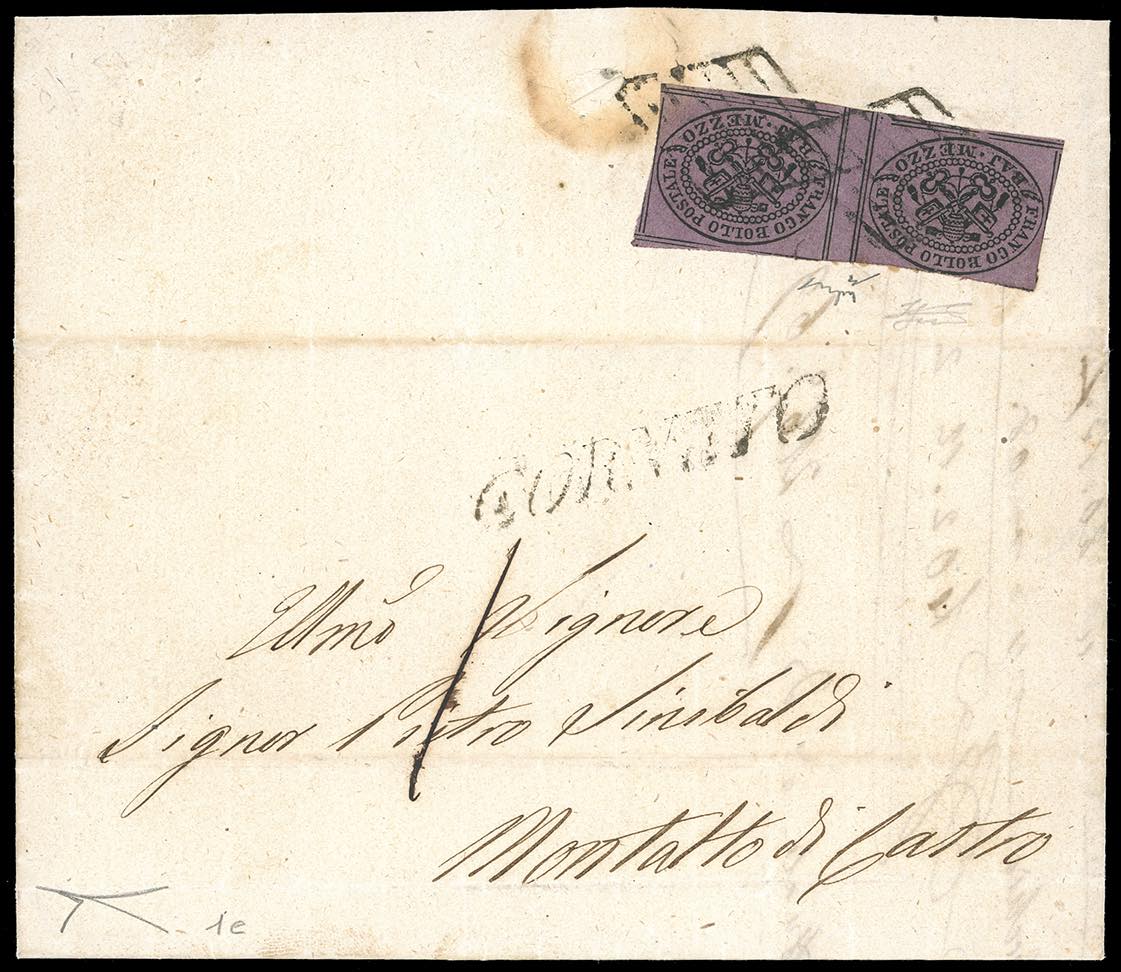 FRANCO BOLLO POSTALE
BAJ. MEZZO
FRANCO BOLLO POSTALE
BAJ. MEZZO
CORNETO
Illmo Signore
Signor Pietro Sinibaldi
Montalto di Castro
1e